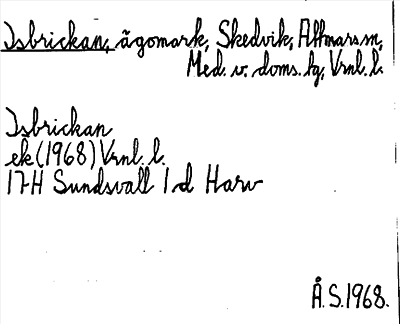 Isbrickan, ägomark, Skedvik, Attmars sn,
Med. v. doms. hg, Vrnl. l.
Isbrickan
ek (1968) Vrnl. l.
17H Sundsvall 1d Harv
Å.S. 1968.